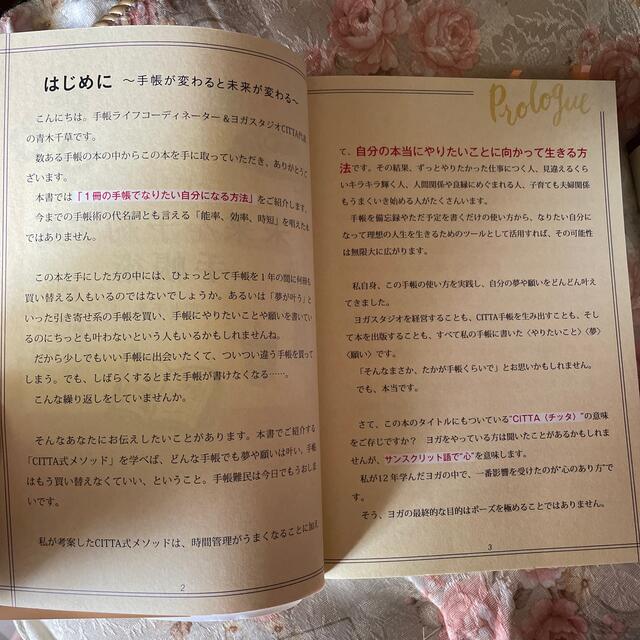 はじめに ～手帳が変わると未来が変わる～
こんにちは。手帳ライフコーディネーター&ヨガスタジオCITTA代表
の青木千草です。
数ある手帳の本の中からこの本を手に取っていただき、ありがとうご
ざいます。
本書では「1冊の手帳でなりたい自分になる方法」をご紹介します。
今までの手帳術の代名詞とも言える「能率、効率、時短」を唱えた本
ではありません。
この本を手にした方の中には、ひょっとして手帳を1年の間に何冊も
買い替える人もいるのではないでしょうか。あるいは「夢が叶う」と
いった引き寄せ系の手帳を買い、手帳にやりたいことや願いを書いている
のにちっとも叶わないという人もいるかもしれませんね。
だから少しでもいい手帳に出会いたくて、ついつい違う手帳を買って
しまう。でも、しばらくするとまた手帳が書けなくなる……。
こんな繰り返しをしていませんか。
そんなあなたにお伝えしたいことがあります。本書でご紹介する
「CITTA式メソッド」を学べば、どんな手帳でも夢や願いは叶い、手帳
はもう買い替えなくていい、ということ。手帳難民は今日でもうおしま
いです。
私が考案したCITTA式メソッドは、時間管理がうまくなることに加え
2
Prologue
て、自分の本当にやりたいことに向かって生きる方
法です。その結果、ずっとやりたかった仕事につく人、見違えるくら
いキラキラ輝く人、人間関係や良縁にめぐまれる人、子育ても夫婦関係
もうまくいき始める人がたくさんいます。
手帳を備忘録やただ予定を書くだけの使い方から、なりたい自分に
なって理想の人生を生きるためのツールとして活用すれば、その可能性
は無限大に広がります。
私自身、この手帳の使い方を実践し、自分の夢や願いをどんどん叶え
てきました。
ヨガスタジオを経営することも、CITTA手帳を生み出すことも、そし
て本を出版することも、すべて私の手帳に書いた〈やりたいこと〉〈夢〉
〈願い〉です。
「そんなまさか、たかが手帳くらいで」とお思いかもしれません。
でも、本当です。
さて、この本のタイトルにもついている“CITTA（チッタ）”の意味
をご存じですか？ ヨガをやっている方は聞いたことがあるかもしれま
せんが、サンスクリット語で“心”を意味します。
私が12年学んだヨガの中で、一番影響を受けたのが“心のあり方”で
す。
そう、ヨガの最終的な目的はポーズを極めることではありません。
3